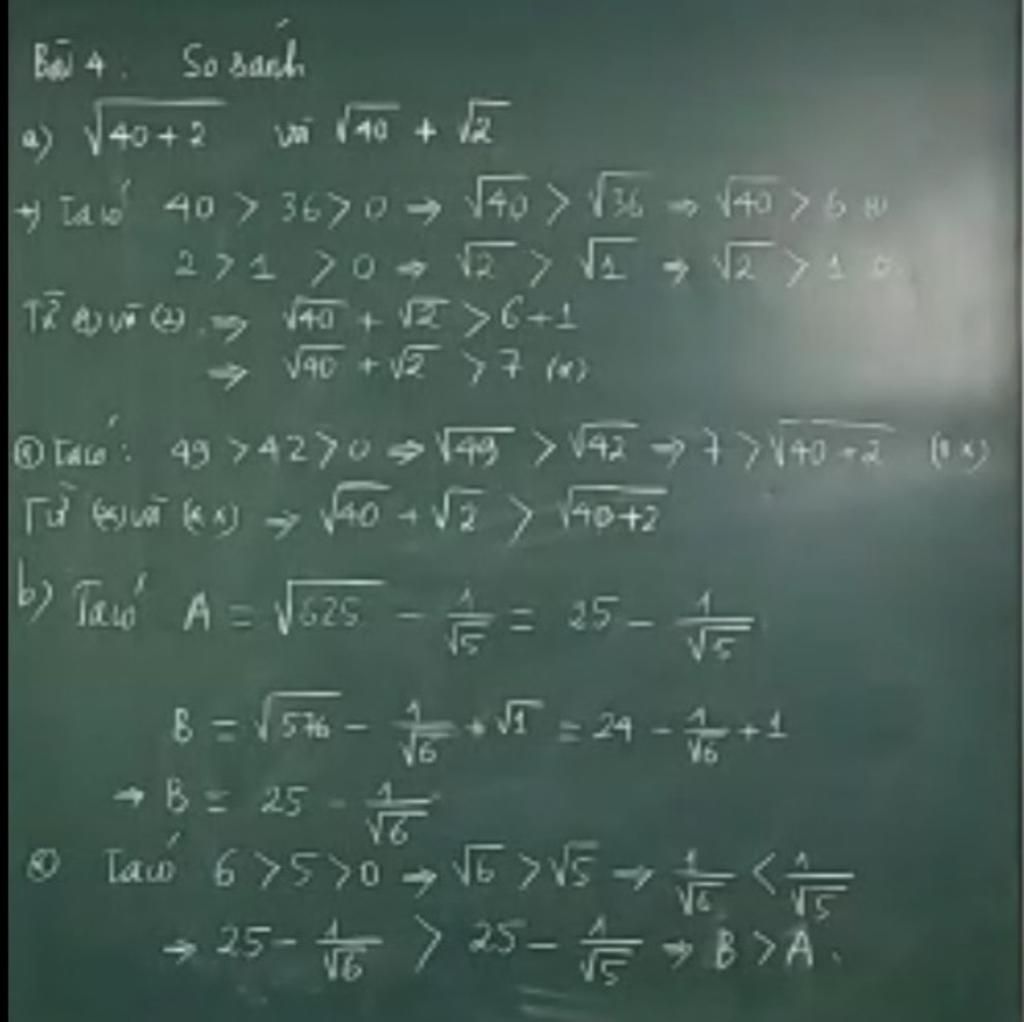 Bài 4. So sánh
a) √(40+2) và √40 + √2
+) Ta có 40 > 36 > 0 ⇒ √40 > √36 ⇒ √40 > 6 (1)
2 > 1 > 0 ⇒ √2 > √1 ⇒ √2 > 1
Từ (1) và (2) ⇒ √40 + √2 > 6+1
⇒ √40 + √2 > 7 (*)
Ta có: 49 > 42 > 0 ⇒ √49 > √42 ⇒ 7 > √(40+2) (**)
Từ (*) và (**) ⇒ √40 + √2 > √(40+2)
b) Ta có A = √625 - 1/√5 = 25 - 1/√5
B = √576 - 1/√6 + √1 = 24 - 1/√6 + 1
→ B = 25 - 1/√6
Ta có 6 > 5 > 0 → √6 > √5 → 1/√6 < 1/√5
→ 25 - 1/√6 > 25 - 1/√5 → B > A.